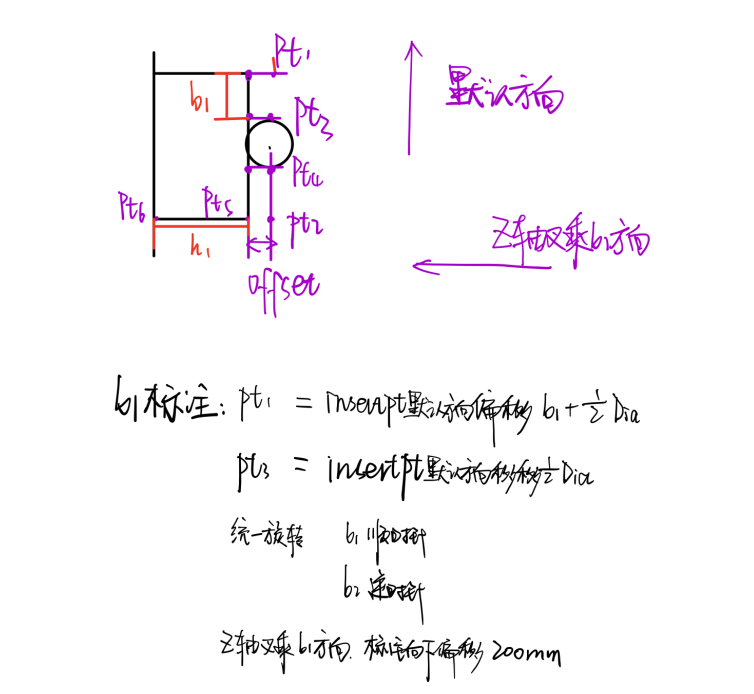 pt1
b1
pt3
pt4
pt6
pt5
pt2
h1
offset
默认方向
Z轴叉乘b2方向
b1标注: pt1 = insertpt默认方向偏移 b1 + 1/2 Dia
pt3 = insertpt默认方向偏移 1/2 Dia
统一旋转 b1 顺时针
b2 逆时针
Z轴叉乘b1方向. 标注向下偏移 200mm